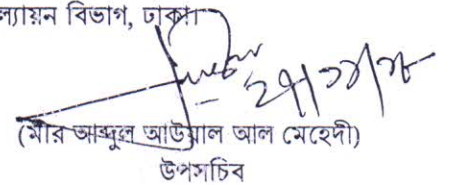 ল্যায়ন বিভাগ, ঢাকা।
২৭/১১/১৮
(মীর আব্দুল আউয়াল আল মেহেদী)
উপসচিব